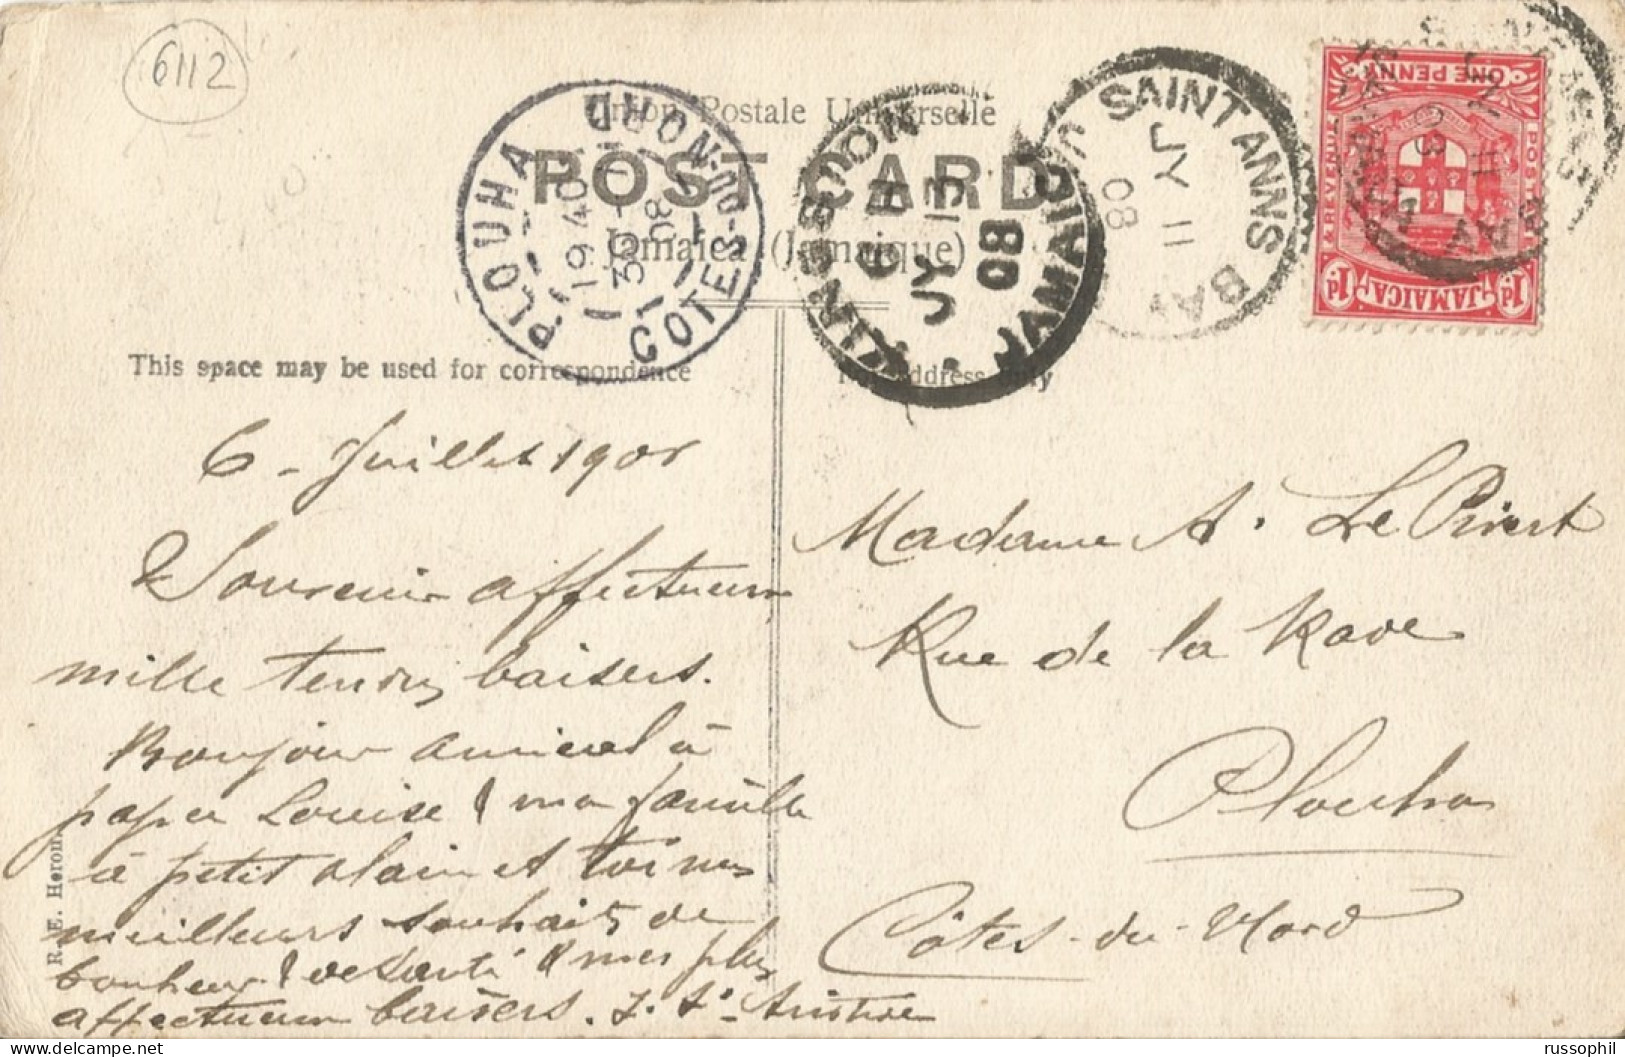 6112
Union Postale Universelle
POST CARD
Jamaica (Jamaïque)
PLOUHA
COTES-DU-NORD
19 40
30 - 7
08
KINGSTON
JAMAICA
JY 13
08
SAINT ANNS BAY
JY 11
08
REVENUE
POSTAGE
ONE PENNY
1d JAMAICA 1d
This space may be used for correspondence
For address only
6 - Juillet 1908
Souvenir affectueux
mille tendres baisers.
Bonjour amical à
papa Louise & ma famille
à petit alain et toi mes
meilleurs souhaits de
bonheur & de santé & mes plus
affectueux baisers.
Madame A. Le Pivert
Rue de la
Plouha
Côtes-du-Nord
R. E. Heron
russophil
delcampe.net